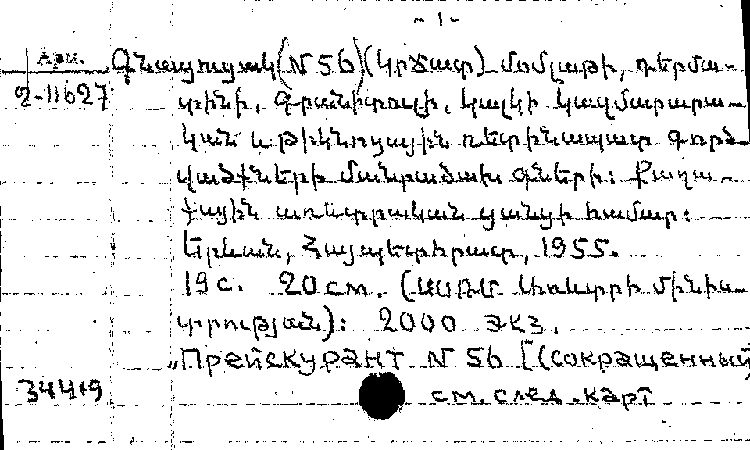 - 1 -
Арм. Գնացուցակ (N 56) (կրճատ) մոմլաթի, դերմա-
2-11627 տինի, գրանիտոլի, կաշկի կազմարարա-
կան և թիկնոցային ռետինապատ գործ-
վածքների մանրածախ գների։ Քաղա-
քային առևտրական ցանցի համար։
Երևան, Հայպետհրատ, 1955.
19 с. 20 см. (ՍՍՌՄ Առևտրի մինիս-
տրություն)։ 2000 экз.
„Прейскурант N 56 [(сокращенный)
34419 см. след. карт